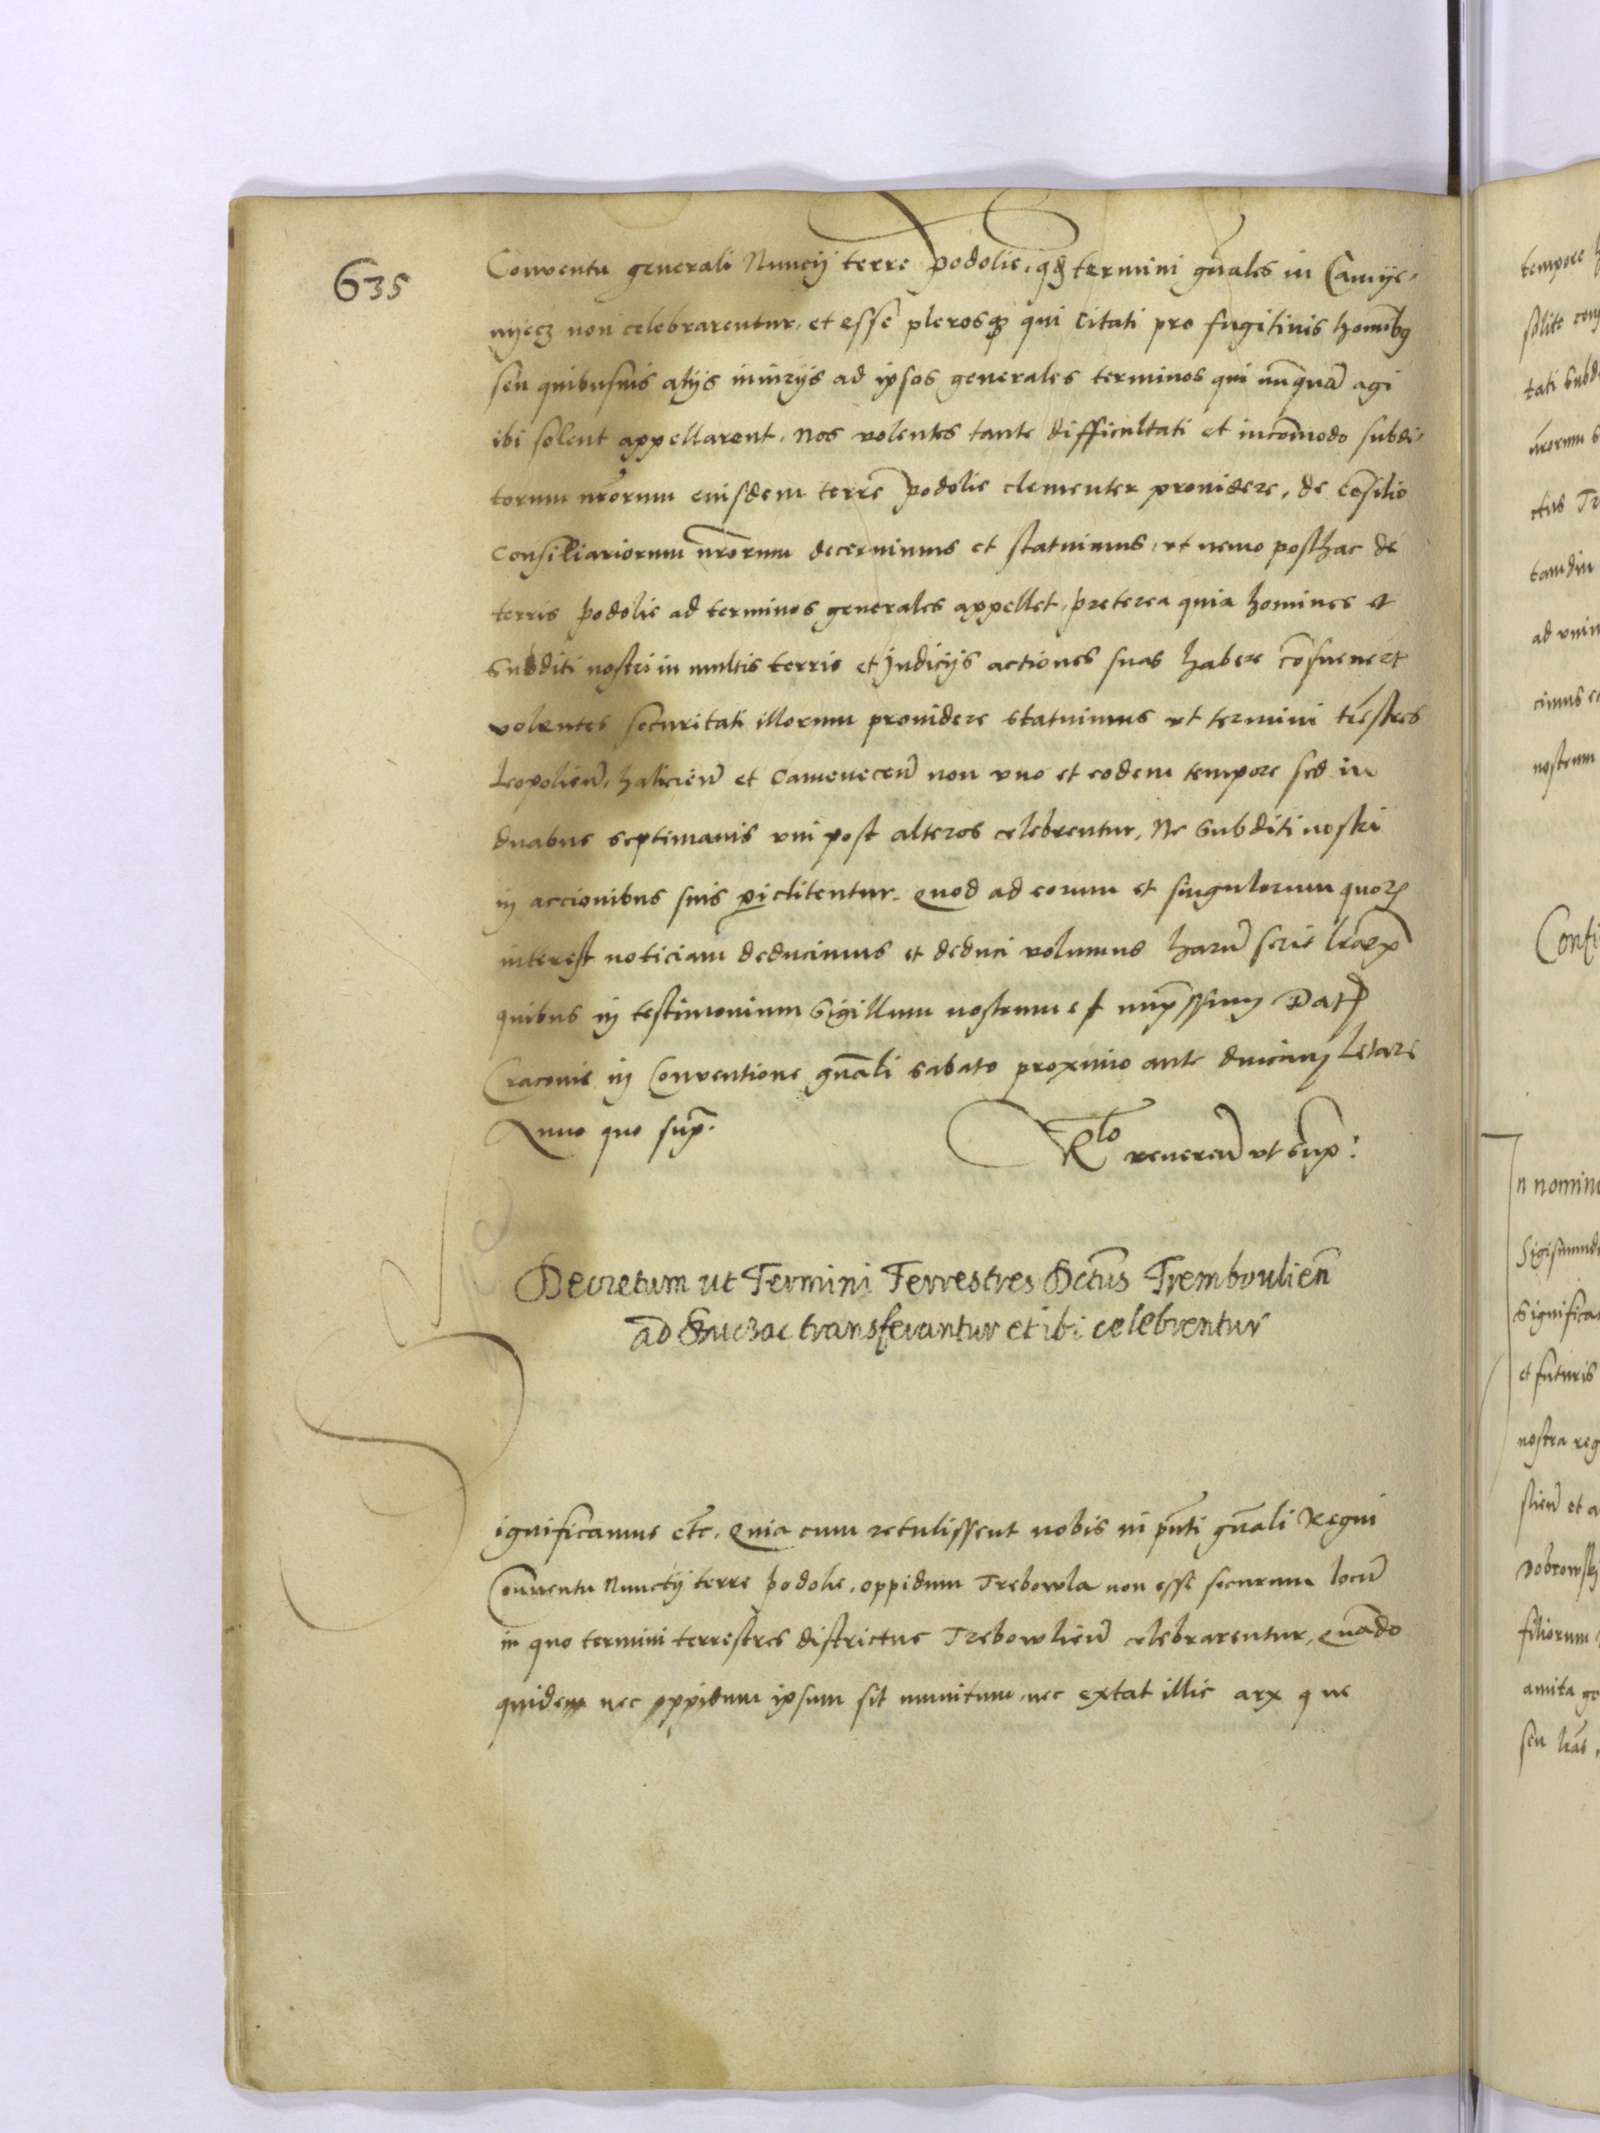 635
Conventu generali Nuncij terre podolie, qđ termini gn̄ales in Camye-
nyecz non celebrarentur, et esse plerosq3 qui citati pro fugitivis homi͠bq
seu quibusuis alijs iniurijs ad ipsos generales terminos qui nūquā agi
ibi solent appellarent, Nos volentes tante difficultati et incōmodo subdi-
torum nr̄orum eiusdem terre podolie clementer prouidere, de cōsilio
Consiliariorum nr̄orum decernimus et statuimus, vt nemo posthac de
terris podolie ad terminos generales appellet, preterea quia homines et
Subditi nostri in multis terris et Judicijs actiones suas habere cōsueuert
volentes securitati illorum prouidere statuimus vt termini tr̄estres
Leopolien̄, halicien̄ et Camenecen̄ non vno et eodem tempore sed in
duabus septimanis vni post alteros celebrentur, Ne Subditi nostri
in accionibus suis piclitentur. Quod ad eorum et singulorum quor
interest noticiam deducimus et deduci volumus harū serie lr̄arx
quibus in testimonium Sigillum nostrum e[st] imp̄ssum Dat
Cracovie in Conventione gn̄ali sabato proximo ante dn̄icam Letare
Anno quo sup̄.
Rlo reueren̄ vt sup̄:
Decretum ut Termini Terrestres Dctus Tremboulien̄
ad transferantur et ibi celebrentur
ignificamus etc. Quia cum retulissent nobis in pn̄ti gn̄ali Regni
Conventu Nunctij terre podolie, oppidum Trebowla non esse securum locū
in quo termini terrestres districtus Trebowlien̄ celebrarentur, Quādo
quidem nec oppidum ipsum sit munitum, nec extat illic arx que
tempore
solite
tati Subd
nr̄orum s
ctus Tr
tamdiu
ad vnin
cimus e
nostrum
Confi
n nomine
Sigismund
Significa
et futuris
nostra reg
slien̄ et a
Dobrowsk
filiorum
amita
seu lr̄as